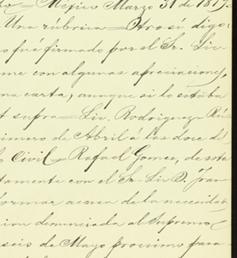 Mejico Marzo 31 de 18
Una rúbrica Otro sí digo
fué firmado por el Sr. Lic
me con algunas apreciaciones,
na carta, aunque si lo
ut supra Lic. Rodriguez Rú
imero de Abril á las doce d
Civil Rafael Gomez, de
tamente con el Sr. Lic D. Fran
formar acerca de la necesidad
ion denunciada al Supremo
seis de Mayo procsimo para